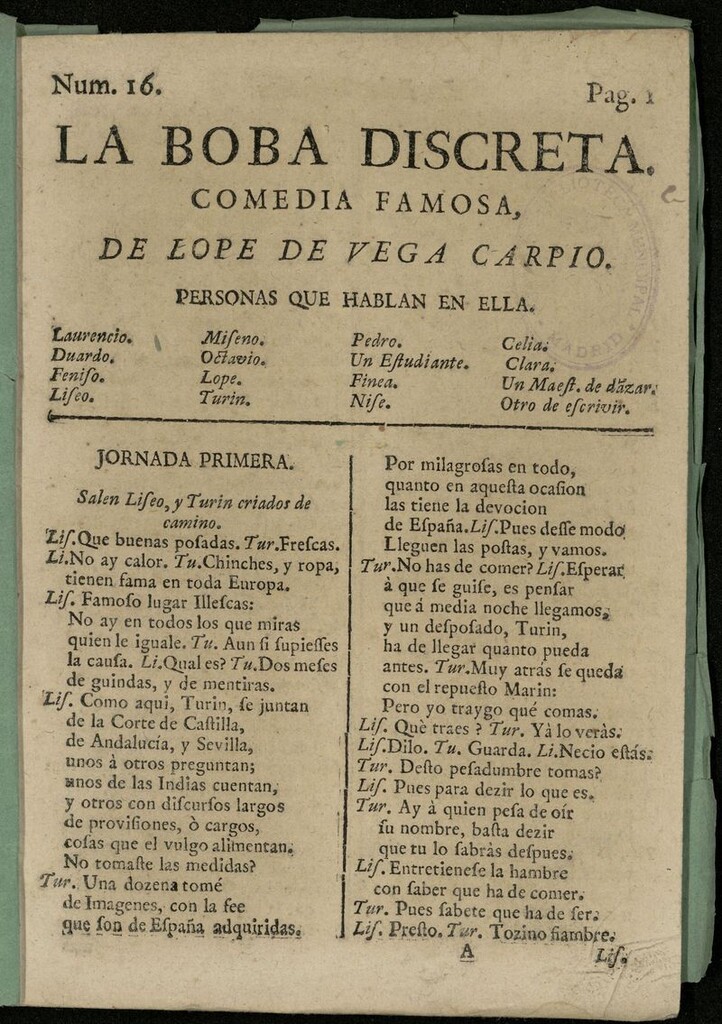 Num. 16.
Pag. 1
LA BOBA DISCRETA.
COMEDIA FAMOSA,
DE LOPE DE VEGA CARPIO.
PERSONAS QUE HABLAN EN ELLA.
Laurencio. Miſeno. Pedro. Celia.
Duardo. Octavio. Un Eſtudiante. Clara.
Feniſo. Lope. Finea. Un Maeſt. de dãzar.
Liſeo. Turin. Niſe. Otro de eſcrivir.
JORNADA PRIMERA.
Salen Liſeo, y Turin criados de
camino.
Liſ. Que buenas poſadas. Tur. Freſcas.
Li. No ay calor. Tu. Chinches, y ropa,
tienen fama en toda Europa.
Liſ. Famoſo lugar Illeſcas:
No ay en todos los que miras
quien le iguale. Tu. Aun ſi ſupieſſes
la cauſa. Li. Qual es? Tu. Dos meſes
de guindas, y de mentiras.
Liſ. Como aqui, Turin, ſe juntan
de la Corte de Caſtilla,
de Andalucía, y Sevilla,
unos à otros preguntan;
unos de las Indias cuentan,
y otros con diſcurſos largos
de proviſiones, ò cargos,
coſas que el vulgo alimentan.
No tomaſte las medidas?
Tur. Una dozena tomé
de Imagenes, con la fee
que ſon de Eſpaña adquiridas.
Por milagroſas en todo,
quanto en aqueſta ocaſion
las tiene la devocion
de Eſpaña. Liſ. Pues deſſe modo
Lleguen las poſtas, y vamos.
Tur. No has de comer? Liſ. Eſperar
à que ſe guiſe, es penſar
que à media noche llegamos;
y un deſpoſado, Turin,
ha de llegar quanto pueda
antes. Tur. Muy atràs ſe queda
con el repueſto Marin:
Pero yo traygo qué comas.
Liſ. Què traes? Tur. Yà lo veràs.
Liſ. Dilo. Tu. Guarda. Li. Necio eſtás.
Tur. Deſto peſadumbre tomas?
Liſ. Pues para dezir lo que es.
Tur. Ay à quien peſa de oír
ſu nombre, baſta dezir
que tu lo ſabràs deſpues.
Liſ. Entretieneſe la hambre
con ſaber que ha de comer.
Tur. Pues ſabete que ha de ſer.
Liſ. Preſto. Tur. Tozino fiambre.
A
Liſ.